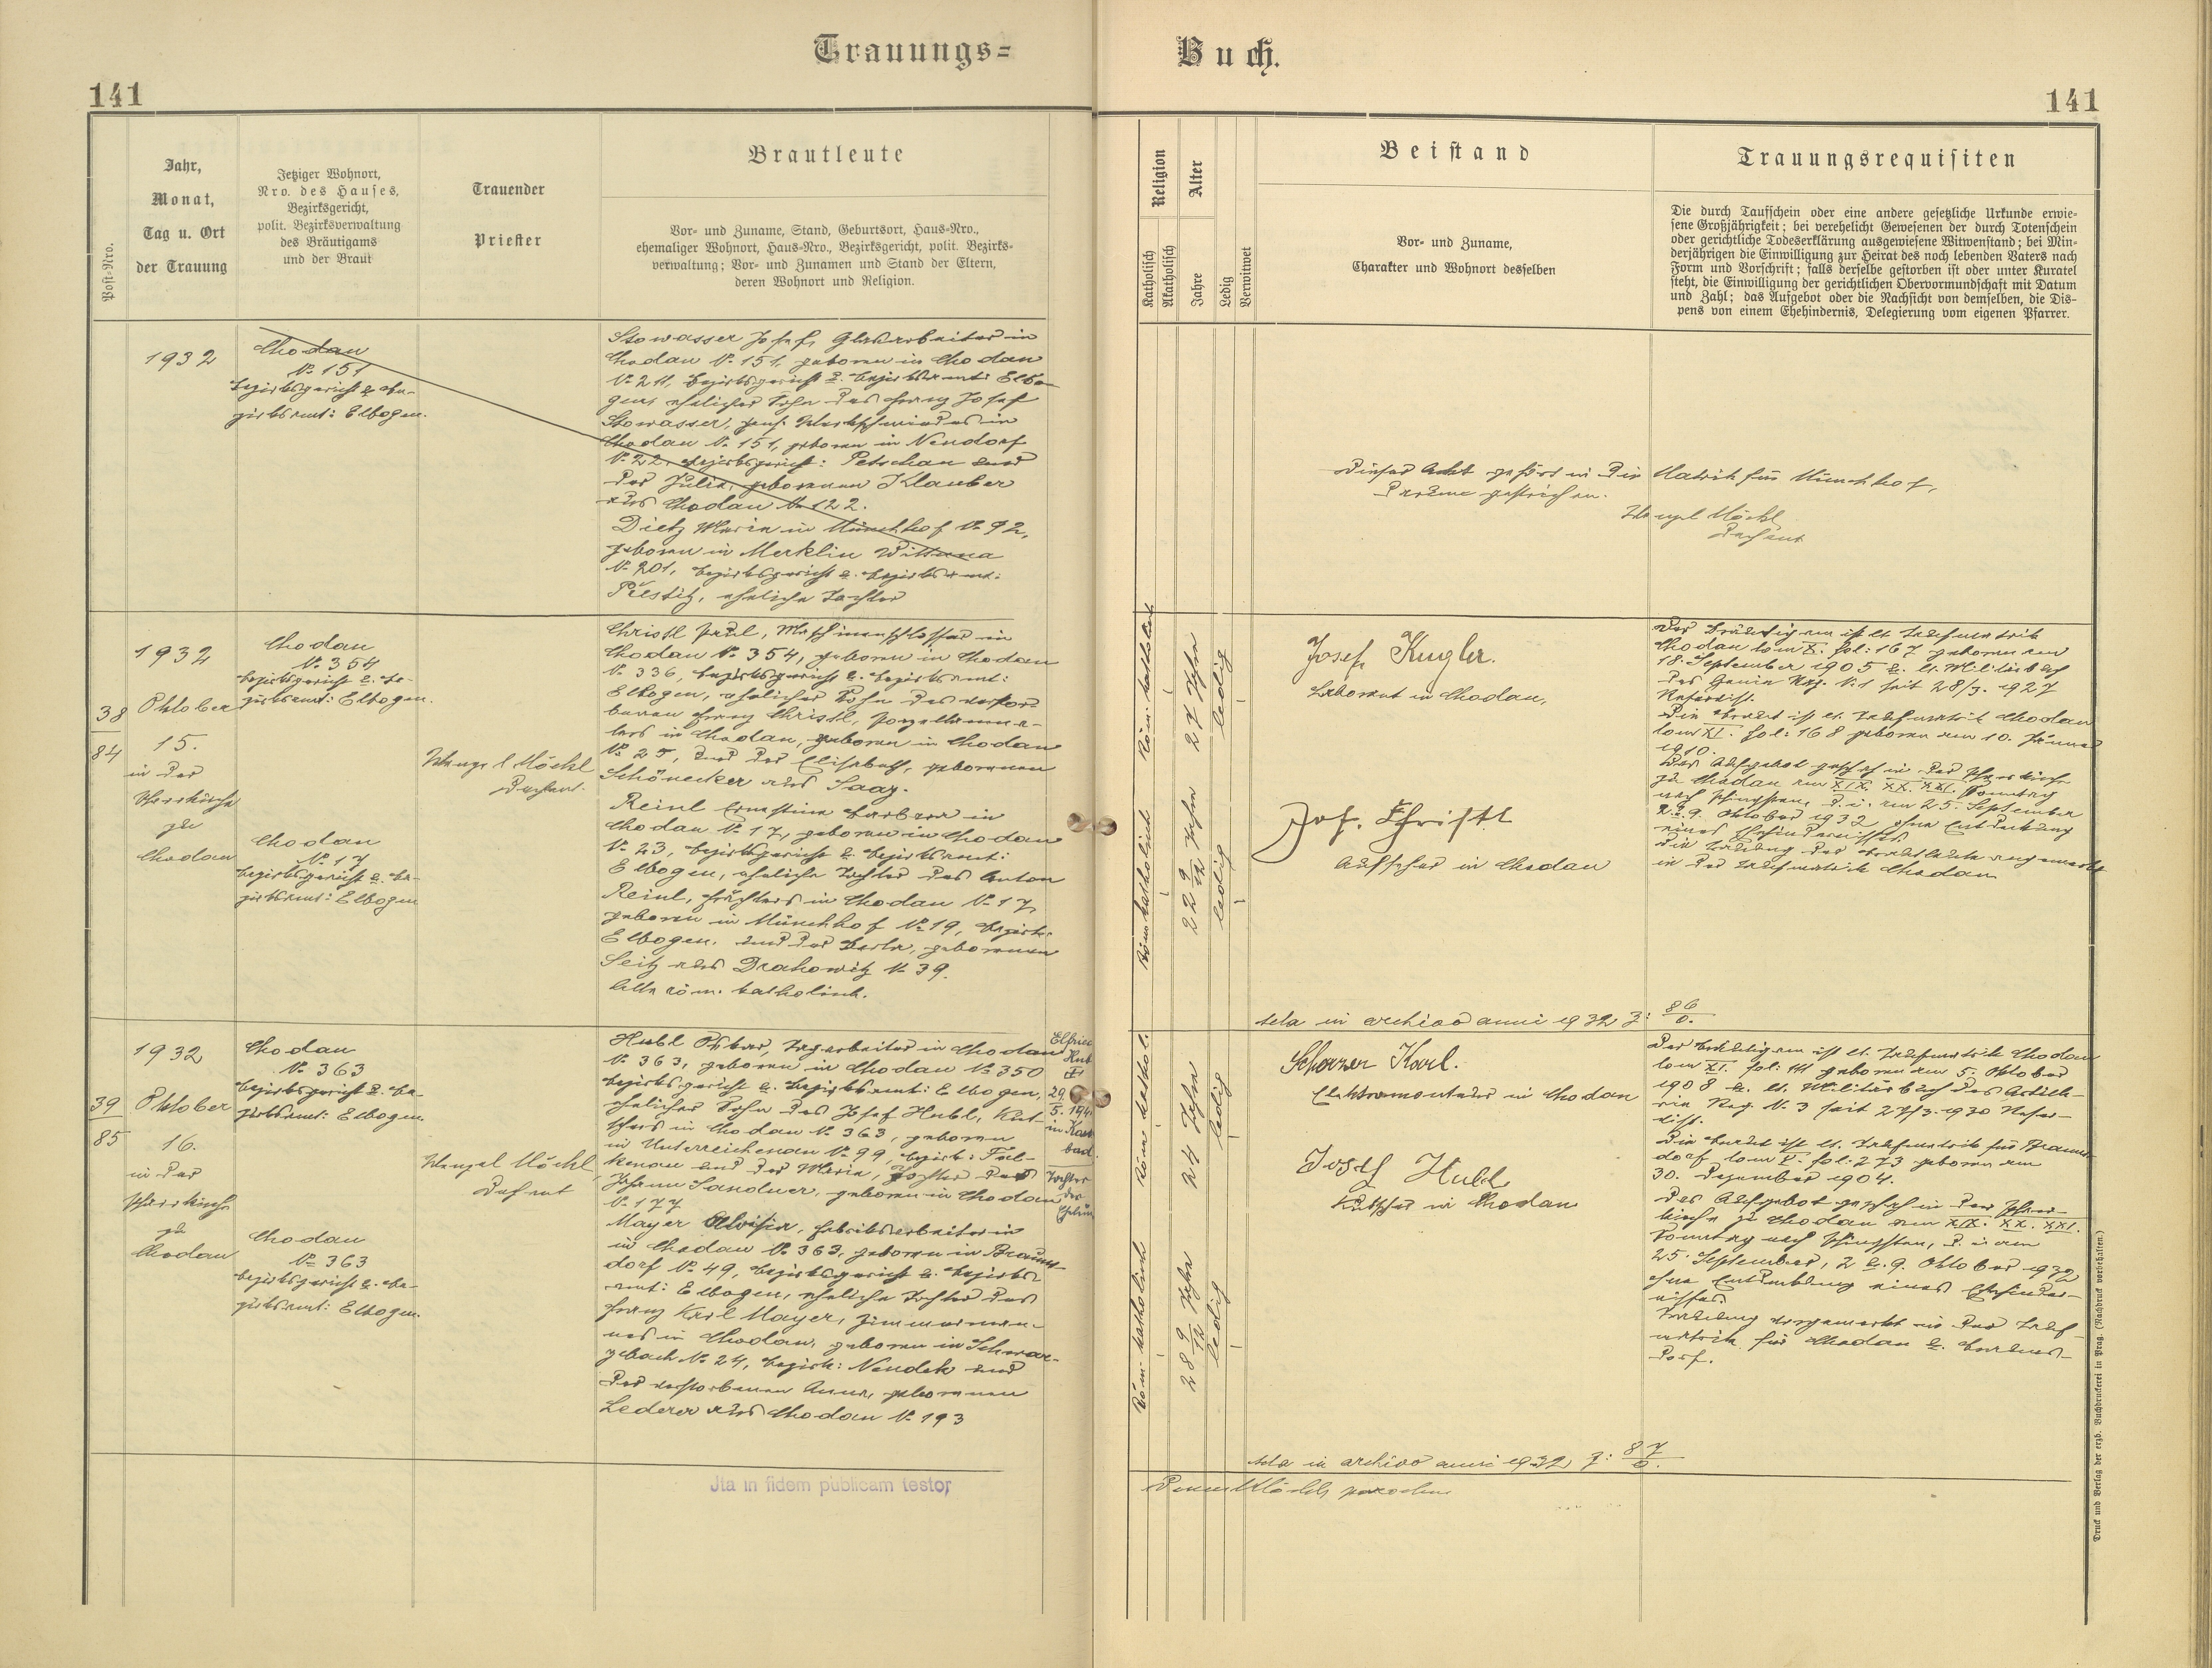 Trauungs=
Buch.
141
141
Post-Nro.
Jahr,
Monat,
Tag u. Ort
der Trauung
Jetziger Wohnort,
Nro. des Hauses,
Bezirksgericht,
polit. Bezirksverwaltung
des Bräutigams
und der Braut
Trauender
Priester
Brautleute
Vor- und Zuname, Stand, Geburtsort, Haus-Nro.,
ehemaliger Wohnort, Haus-Nro., Bezirksgericht, polit. Bezirks-
verwaltung; Vor- und Zunamen und Stand der Eltern,
deren Wohnort und Religion.
Religion
Katholisch
Akatholisch
Alter
Jahre
Ledig
Verwitwet
Beistand
Vor- und Zuname,
Charakter und Wohnort desselben
Trauungsrequisiten
Die durch Taufschein oder eine andere gesetzliche Urkunde erwie-
sene Großjährigkeit; bei verehelicht Gewesenen der durch Totenschein
oder gerichtliche Todeserklärung ausgewiesene Witwenstand; bei Min-
derjährigen die Einwilligung zur Heirat des noch lebenden Vaters nach
Form und Vorschrift; falls derselbe gestorben ist oder unter Kuratel
steht, die Einwilligung der gerichtlichen Obervormundschaft mit Datum
und Zahl; das Aufgebot oder die Nachsicht von demselben, die Dis-
pens von einem Ehehindernis, Delegierung vom eigenen Pfarrer.
1932
Chodau
No 151
Bezirksgericht u. Be-
zirksamt: Elbogen.
Stowasser Josef, Glasarbeiter in
Chodau No 151, geboren in Chodau
No 211, Bezirksgericht u. Bezirksamt: Elbo-
gen, ehelicher Sohn des Franz Josef
Stowasser, in
Chodau No 151, geboren in Neudorf
No 22, Bezirksgericht: Petschau und
der Julia, geborenen Klauber
aus Chodau No 122.
Dietz Maria in Münchhof No 92,
geboren in Merklin
No 201, Bezirksgericht u. Bezirksamt:
Přestitz, eheliche Tochter
Dieser Akt gehört in die Matrik für Münchhof,
darum gestrichen.
Wenzel Möckl
Dechant
38
84
1932
Oktober
15.
in der
Pfarrkirche
zu
Chodau
Chodau
No 354
Bezirksgericht u. Be-
zirksamt: Elbogen.
Chodau
No 17
Bezirksgericht u. Be-
zirksamt: Elbogen
Wenzel Möckl
Dechant.
Christl Paul, Maschinenschlosser in
Chodau No 354, geboren in Chodau
No 336, Bezirksgericht u. Bezirksamt:
Elbogen, ehelicher Sohn des verstor-
benen Franz Christl, Porzellanma-
lers in Chodau, geboren in Chodau
No 25, und der Elisabeth, geborenen
Schönecker aus Saaz.
Reinl Ernestine Barbara in
Chodau No 17, geboren in Chodau
No 23, Bezirksgericht u. Bezirksamt:
Elbogen, eheliche Tochter des Anton
Reinl, Pächters in Chodau No 17,
geboren in Münchhof No 19, Bezirk:
Elbogen, und der Berta, geborenen
Seitz aus Drahowitz No 39.
Alle röm. katholisch.
Röm. katholisch
27 Jahre
ledig
Röm. katholisch
22 9/12 Jahre
ledig
Josef Kugler.
Laborant in Chodau,
Jos. Christl
Aufseher in Chodau
Der Bräutigam ist lt. Taufmatrik
Chodau tom X. fol: 167 geboren am
18. September 1905 u. lt. Militärbuch
des Genie Reg. No 1 seit 28/3. 1927
Reservist.
Die Braut ist lt. Taufmatrik Chodau
tom XI. fol: 168 geboren am 10. Jänner
1910.
Das Aufgebot geschah in der Pfarrkirche
zu Chodau am XIX. XX. XXI. Sonntag
nach Pfingsten, d. i. am 25. September
2. u. 9. Oktober 1932, ohne Entdeckung
eines Ehehindernisses.
Die Trauung der Brautleute angemerkt
in der Taufmatrik Chodau
Acta in archivo anni 1932 Z: 86/0.
39
85
1932
Oktober
16.
in der
Pfarrkirche
zu
Chodau
Chodau
No 363
Bezirksgericht u. Be-
zirksamt: Elbogen.
Chodau
No 363
Bezirksgericht u. Be-
zirksamt: Elbogen.
Wenzel Möckl,
Dechant
Hubl Oskar, Tagarbeiter in Chodau
No 363, geboren in Chodau No 350
Bezirksgericht u. Bezirksamt: Elbogen,
ehelicher Sohn des Josef Hubl, Kut-
schers in Chodau No 363, geboren
in Unterreichenau No 99, Bezirk: Fal-
kenau und der Maria, Tochter des
Johann Sandner, geboren in Chodau
No 177
Mayer Aloisia, Fabriksarbeiterin
in Chodau No 363, geboren in Brauns-
dorf No 49, Bezirksgericht u. Bezirks-
amt: Elbogen, eheliche Tochter des
Franz Karl Mayer, Zimmerman-
nes in Chodau, geboren in Schwar-
zbach No 24, Bezirk: Neudek und
der verstorbenen Anna, geborenen
Lederer aus Chodau No 193
29
5. 194
Tochter
der
Röm. katholisch
24 Jahre
ledig
Röm. katholisch
28 9/12 Jahre
ledig
Scherzer Karl.
Elektromonteur in Chodau
Josef Hubl
Kutscher in Chodau
Der Bräutigam ist lt. Taufmatrik Chodau
tom XI. fol: 111 geboren am 5. Oktober
1908 u. lt. Militärbuch des Artille-
rie Reg. No 3 seit 27/3. 1930 Reser-
vist.
Die Braut ist lt. Taufmatrik für Brauns-
dorf tom V. fol: 273 geboren am
30. Dezember 1904.
Das Aufgebot geschah in der Pfarr-
kirche zu Chodau am XIX. XX. XXI.
Sonntag nach Pfingsten, d. i. am
25. September, 2. u. 9. Oktober 1932
ohne Entdeckung eines Ehehinder-
nisses.
Trauung angemerkt in der Tauf-
matrik für Chodau u. Brauns-
dorf.
Acta in archivo anni 1932 Z: 87/0.
Jta in fidem publicam testor
Druck und Verlag der erzb. Buchdruckerei in Prag. (Nachdruck vorbehalten.)